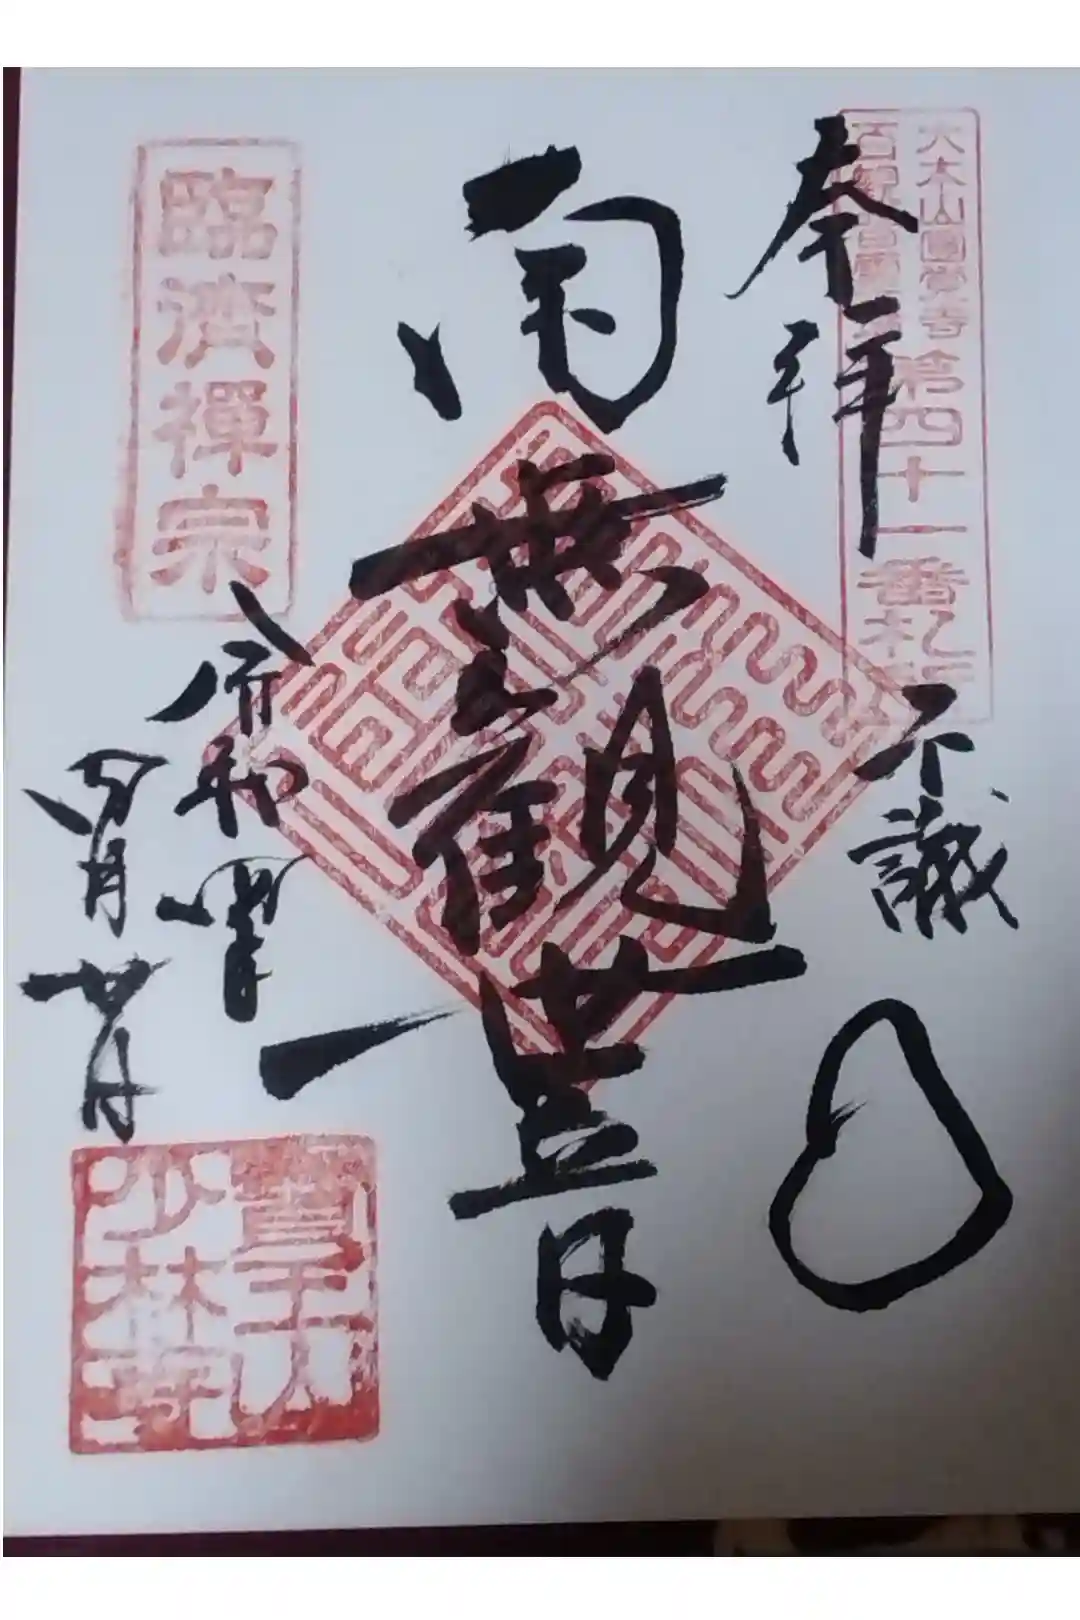 大本山圓覚寺
百観音霊
第四十一番札所
奉拝
不識
南無観世音
臨濟禪宗
令和
四月廿日
少林